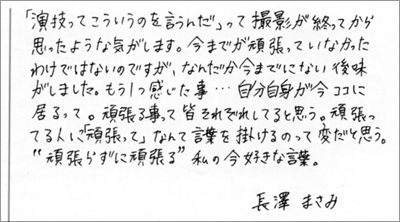 「演技ってこういうのを言うんだ」って撮影が終ってから
思ったような気がします。今までが頑張っていなかった
わけではないのですが、なんだか今までにない後味
がしました。もう1つ感じた事…自分自身が今ココに
居るって。頑張る事って皆それぞれしてると思う。頑張っ
てる人に「頑張って」なんて言葉を掛けるのって変だと思う。
“頑張らずに頑張る”私の今好きな言葉。
長澤 まさみ